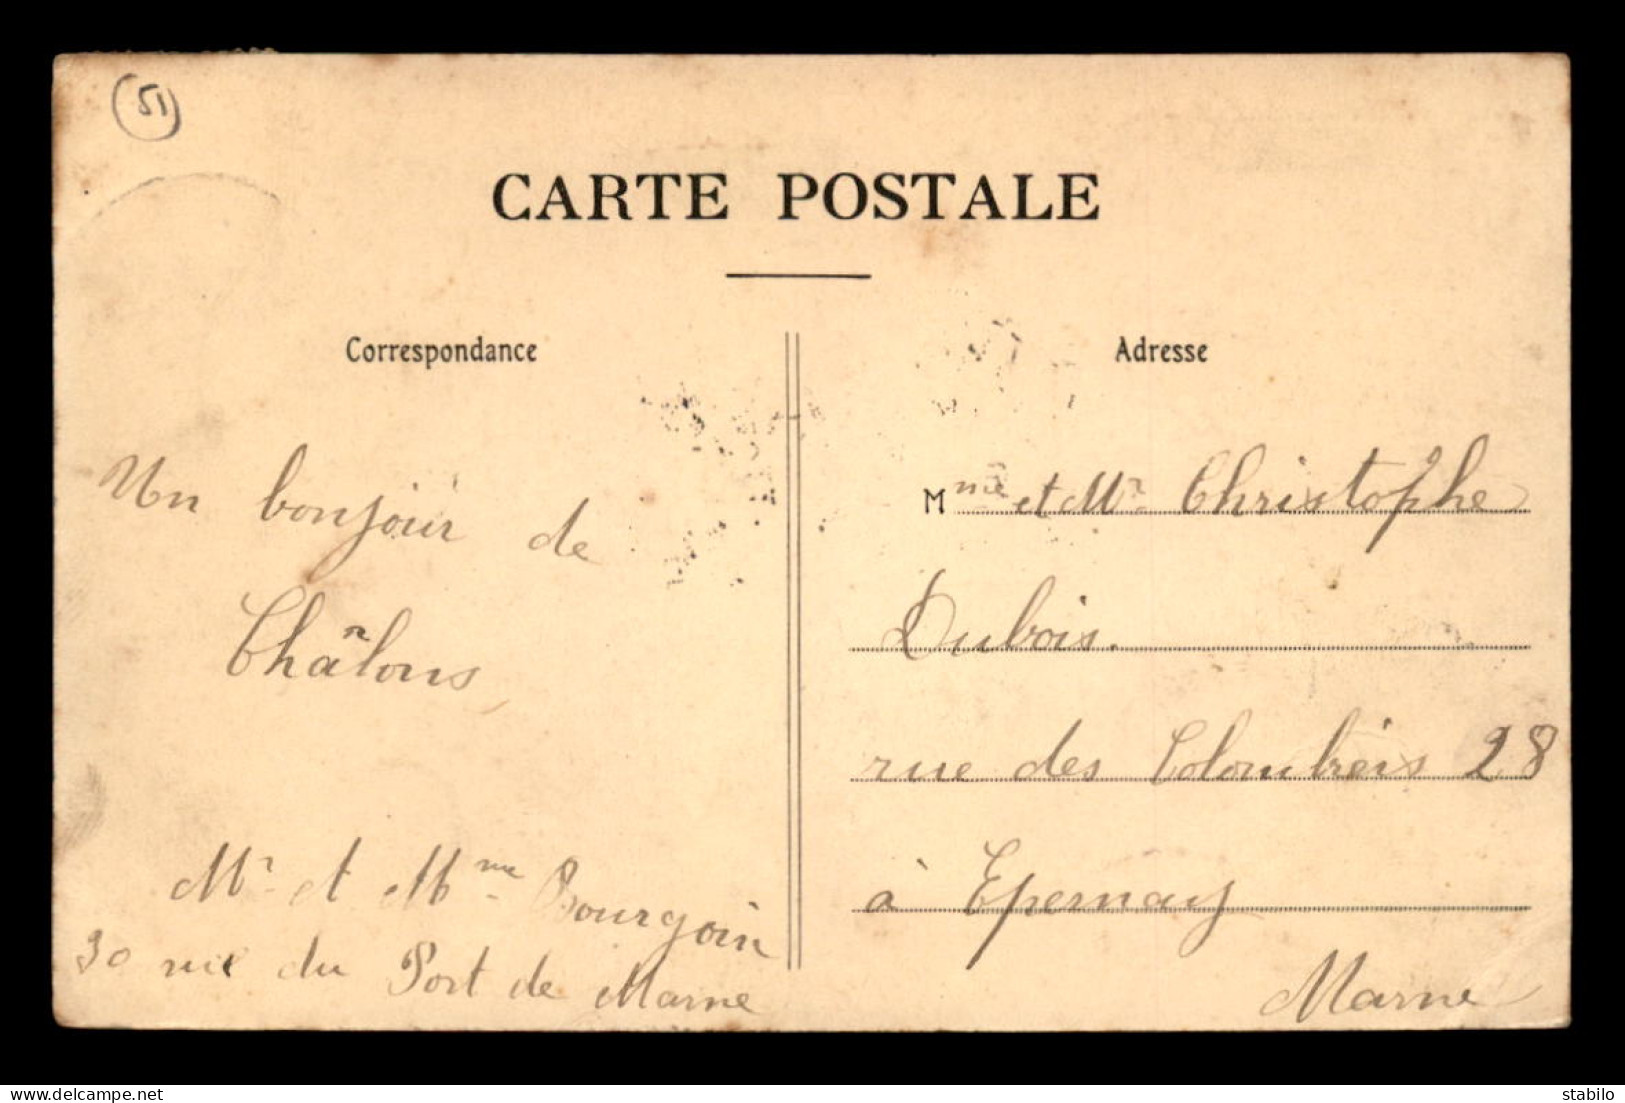 51
CARTE POSTALE
Correspondance
Adresse
Un bonjour de
Châlons
Mr et Mme Bourgoin
30 rue du Port de Marne
Mme et Mr Christophe
Dubois.
rue des Colombiers 28
à Epernay
Marne
stabilo